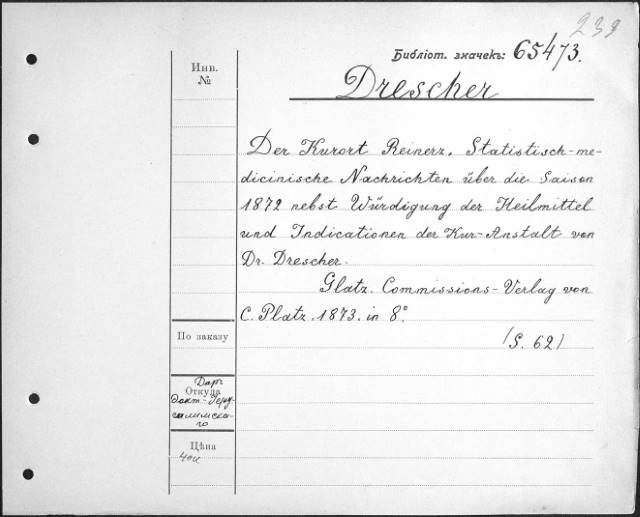 239
Библіот. значекъ: 65473.
Инв.
№
Drescher
Der Kurort Reinerz. Statistisch-me-
dicinische Nachrichten über die Saison
1872 nebst Würdigung der Heilmittel
und Indicationen der Kur-Anstalt von
Dr. Drescher.
Glatz. Commissions-Verlag von
C. Platz. 1873. in 8°
(S. 62)
По заказу
Даръ
Откуда
Докт-
го
Цѣна
40к